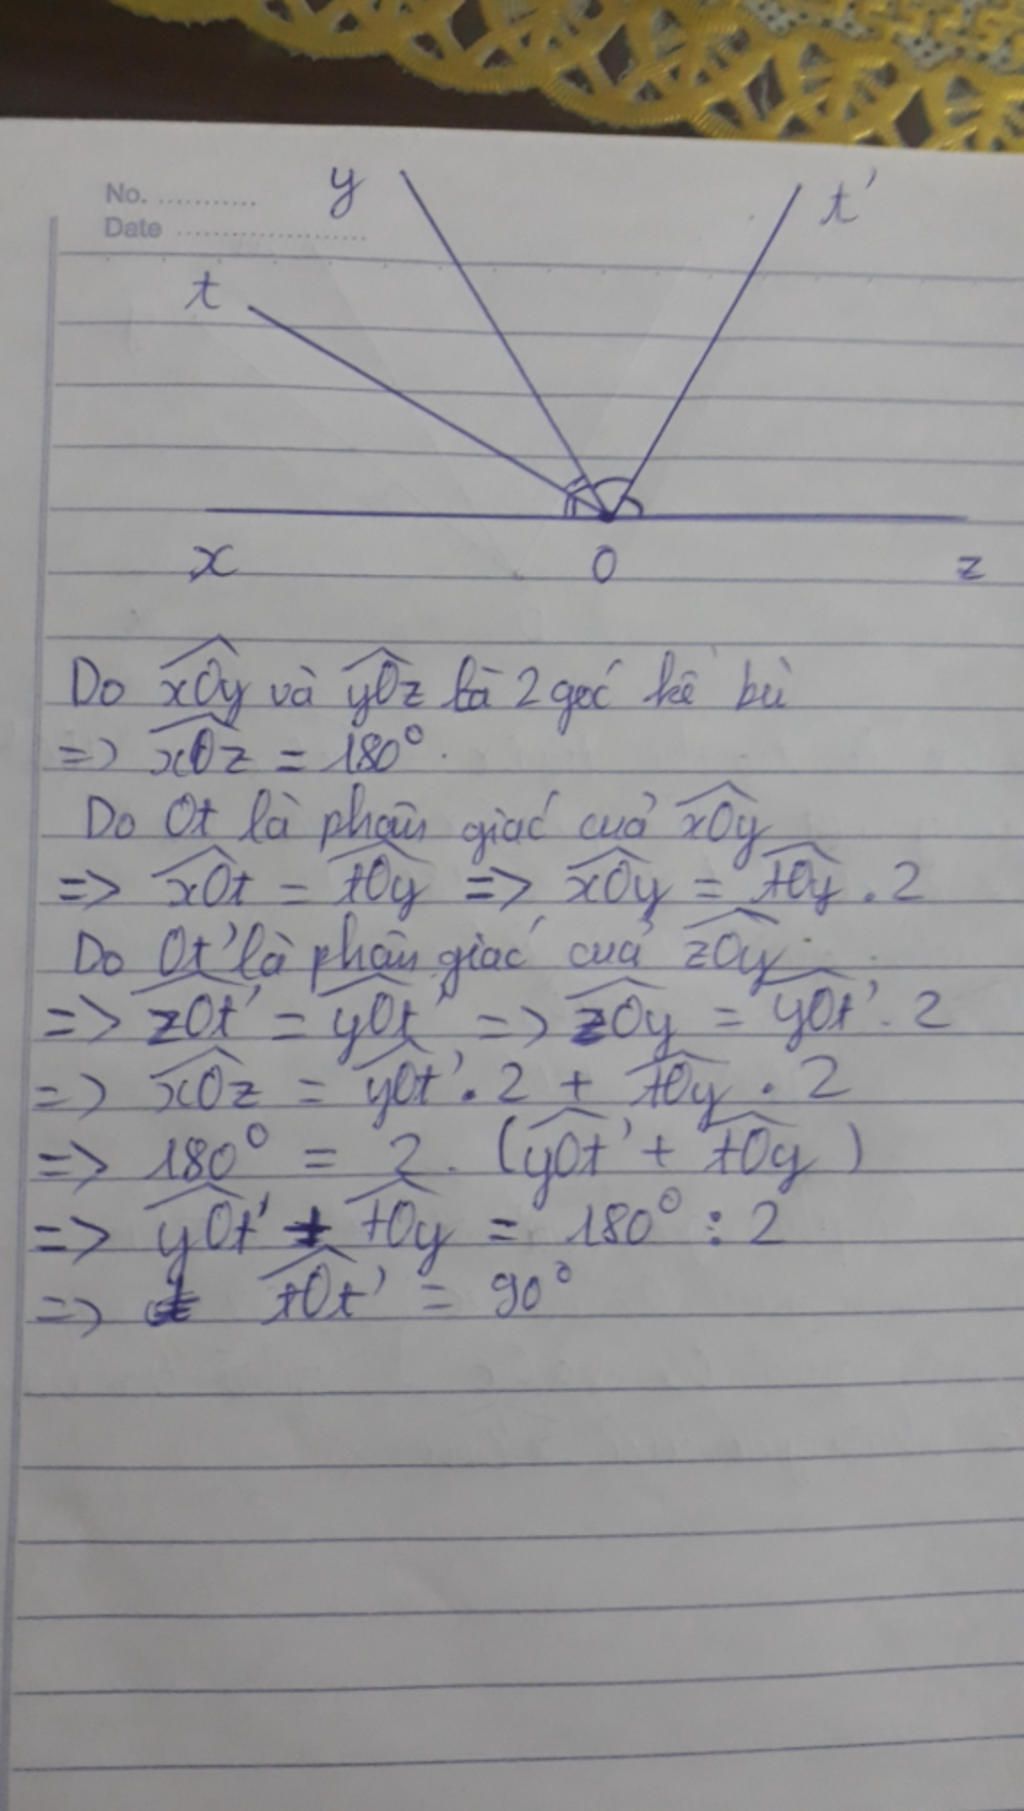 No. ...........
Date ....................
y
t'
t
x
O
z
Do xOy và yOz là 2 góc kề bù
=> xOz = 180°.
Do Ot là phân giác của xOy
=> xOt = tOy => xOy = tOy . 2
Do Ot' là phân giác của zOy
=> zOt' = yOt' => zOy = yOt' . 2
=> xOz = yOt' . 2 + tOy . 2
=> 180° = 2 . (yOt' + tOy)
=> yOt' + tOy = 180° : 2
=> tOt' = 90°